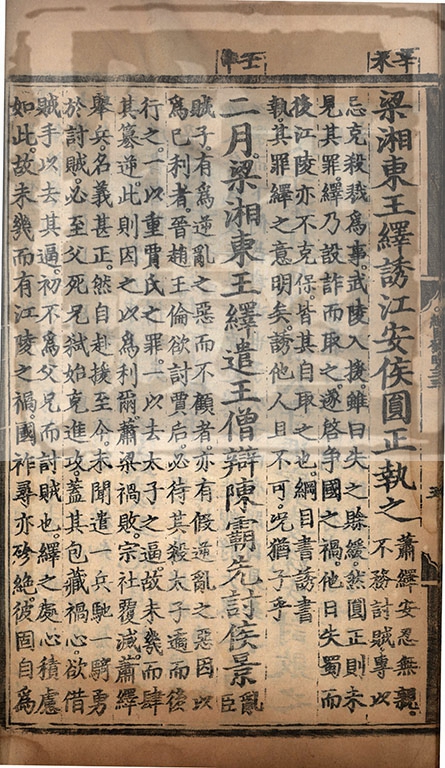 辛未
壬申
梁湘東王繹誘江安侯圓正執之
蕭繹安忍無親。
不務討賊專以
忌克殺戮爲事。武陵入援。雖曰失之賒緩。然圓正則未
見其罪。繹乃設詐而取之。遂啓爭國之禍。他日失蜀而
後江陵亦不克保。皆其自取之也。綱目書誘書
執其罪繹之意明矣。誘他人且不可。况猶子乎
二月。梁湘東王繹遣王僧辯陳霸先討侯景
亂
臣
賊子。有爲逆亂之惡而不顧者。亦有假逆亂之惡。因以
爲已利者。晉趙王倫欲討賈后。必待其殺太子遹而後
行之。一以重賈氏之罪。一以去太子之逼。故未幾而肆
其篡逆。此則因之以爲利爾。蕭梁禍敗。宗社覆滅。蕭繹
舉兵。名義甚正。然自赴援至今。未聞遣一兵馳一騎勇
於討賊。必至父死兄弒。始克進攻。蓋其包藏禍心。欲借
賊手以去其逼。初不爲父兄而討賊也。繹之處心積慮
如此。故未幾而有江陵之禍。國祚尋亦殄絕。彼固自爲